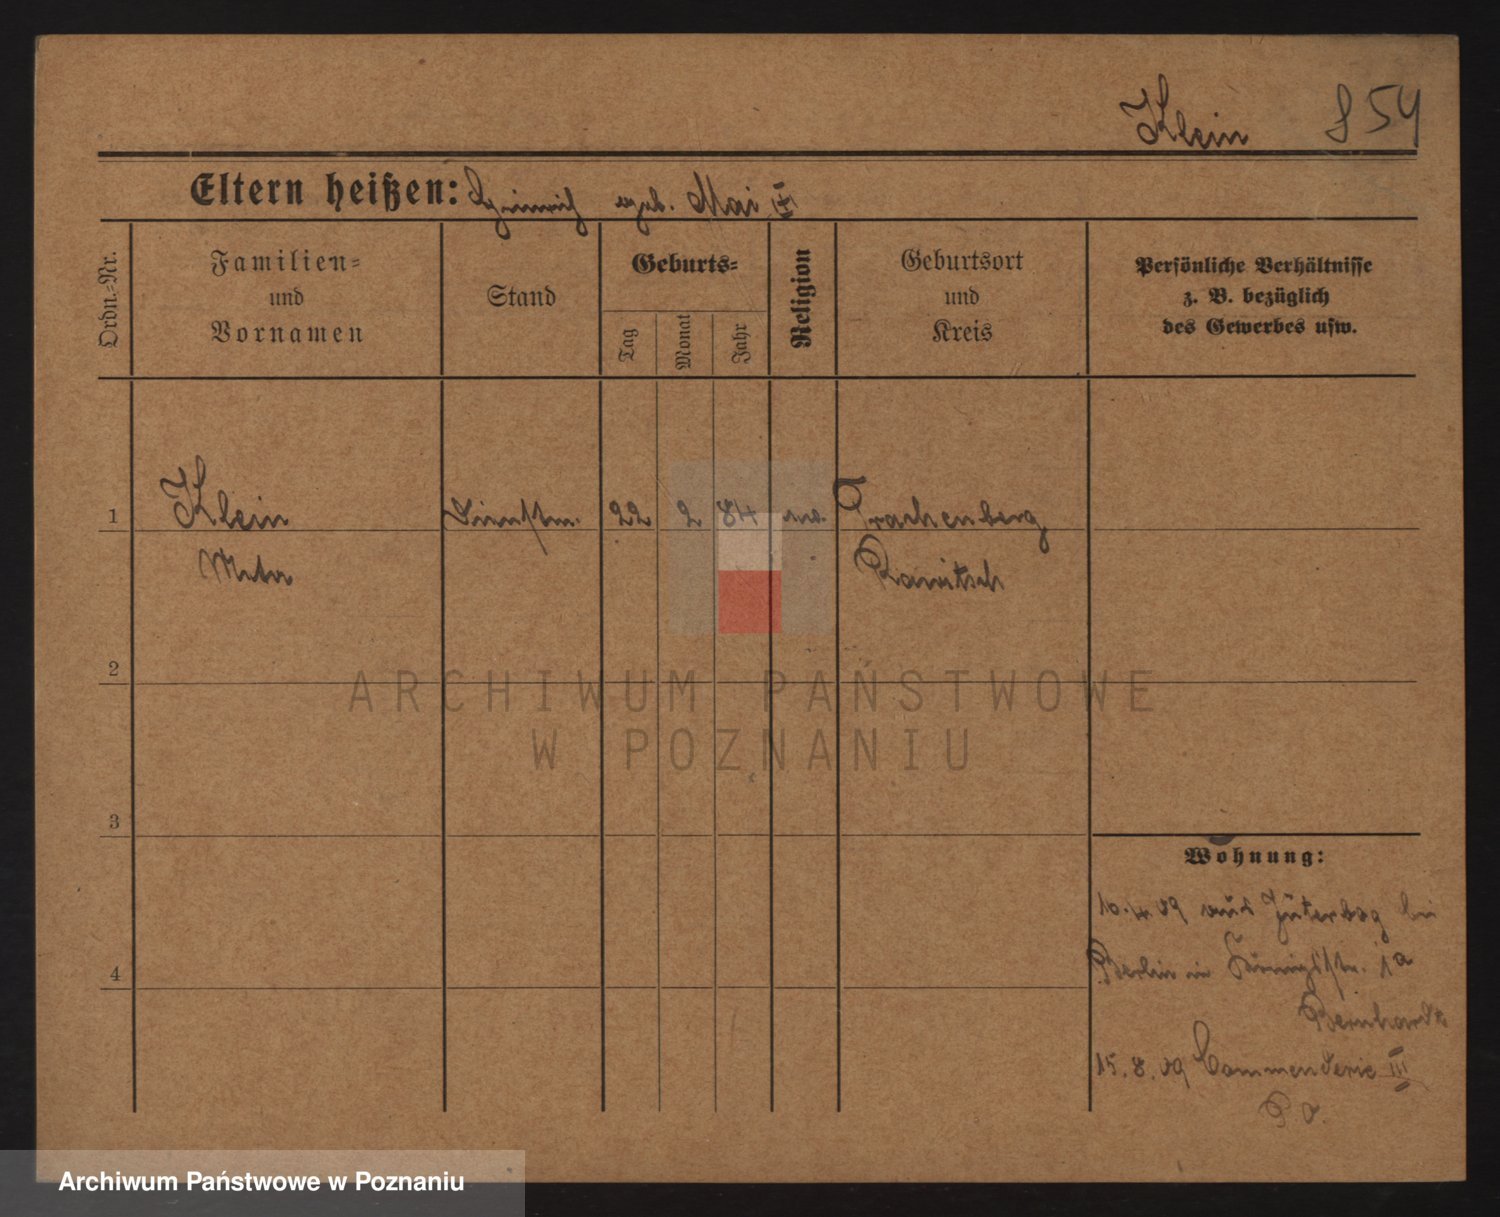 Klein 854
Eltern heißen: Heinrich geb. Mai II
Ordn.-Nr.
Familien-
und
Vornamen
Stand
Geburts-
Tag
Monat
Jahr
Religion
Geburtsort
und
Kreis
Persönliche Verhältnisse
z. B. bezüglich
des Gewerbes usw.
1 Klein Dienstm. 22 2 84 ev. Trachenberg
Meta Rawitsch
2
ARCHIWUM PAŃSTWOWE
W POZNANIU
3
Wohnung:
10.4.09 aus Jüterbog bei
Berlin in Königstr. 1a
4
Bernhardt
15.8.09 Commenderie III
Archiwum Państwowe w Poznaniu